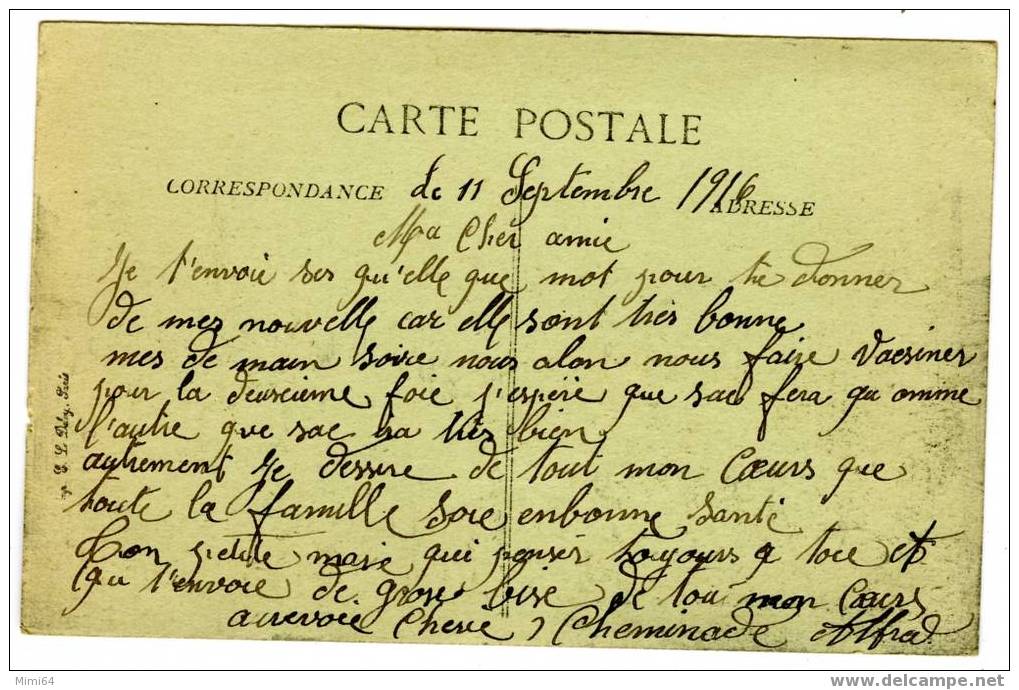 CARTE POSTALE
CORRESPONDANCE
ADRESSE
Le 11 Septembre 1916
Ma Cher amie
Je t'envoie ses qu'elle que mot pour te donner
de mes nouvelle car elle sont très bonne
mes de main soire nous alon nous faire Vacsiner
pour la deuscieme foie j'espère que sac fera qu omme
l'autre que sac ra très bien
autrement Je dessire de tout mon Cœurs que
toute la famille soie enbonne santé
Ton petite mari qui penser toujours a toie et
qu t'envoie de grose bise de tou mon Cœurs
aurevoie Cherie Cheminade Alfred
Mimi64
www.delcampe.net